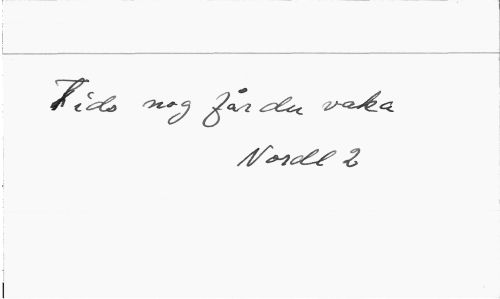 Tids nog får du vaka
Nordl 2